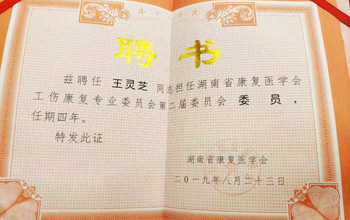 聘书
兹聘任 王灵芝 同志担任湖南省康复医学会
工伤康复专业委员会第二届委员会 委员，
任期四年。
特发此证
湖南省康复医学会
二0一九年八月二十三日